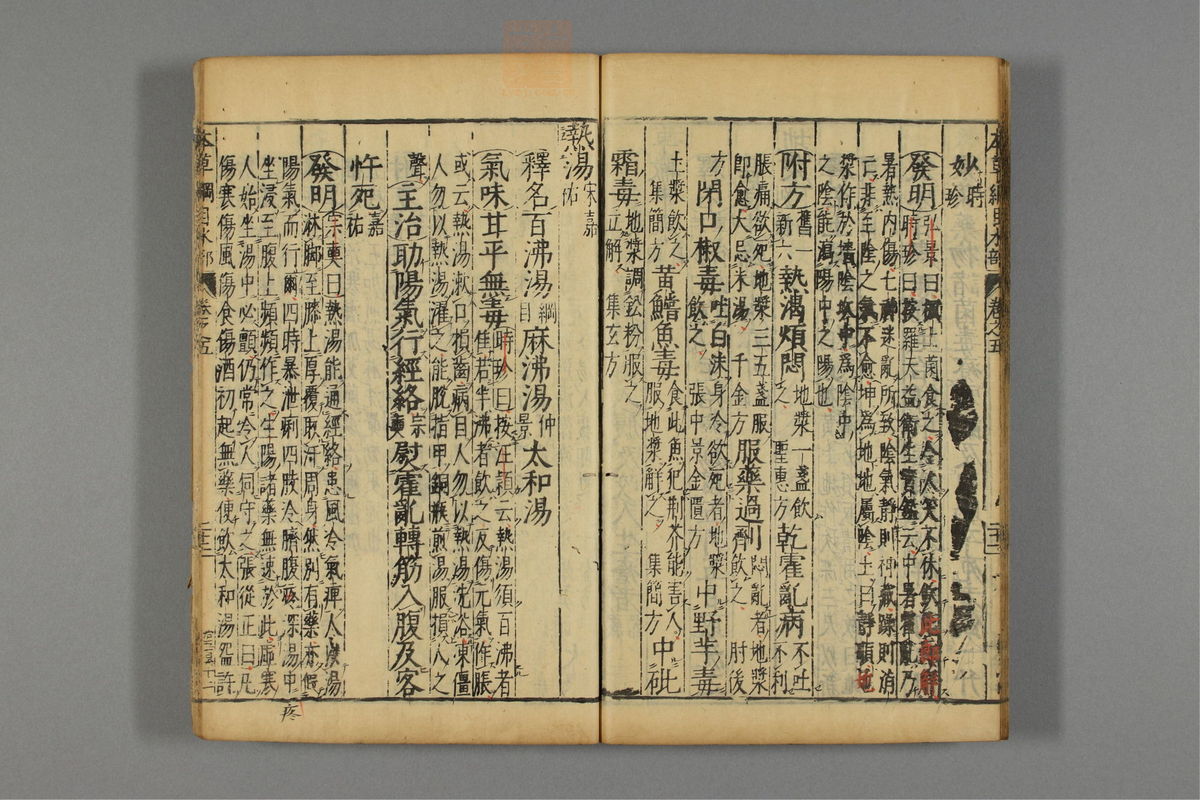 本草綱目水部 卷之五
妙 時珍
發明 弘景曰楓上菌食之令人笑不休飲此即解
時珍曰按羅天益衛生寶鑑云中暑霍亂乃
暑熱內傷七神迷亂所致陰氣靜則神藏躁則消
亡非至陰之氣不愈坤為地地屬陰土曰靜順地
漿作於墻陰坎中為陰中
之陰能瀉陽中之陽也
附方 舊一新六 熱渴煩悶 地漿一盞飲之 聖惠方 乾霍亂病 不吐不利
脹痛欲死地漿三五盞服
即愈大忌米湯 千金方 服藥過剂 悶亂者地漿飲之 肘後
方 閉口椒毒 吐白沫身冷欲死者地漿飲之 張中景金匱方 中野芋毒
土漿飲之 集簡方 黃鱔魚毒 食此魚犯荆芥能害人服地漿解之 集簡方 中砒
霜毒 地漿調鉛粉服之立解 集玄方
熱湯 宋嘉祐
釋名百沸湯 綱目 麻沸湯 仲景 太和湯
氣味甘平無毒 時珍曰按汪頴云熱湯須百沸者
佳若半沸者飲之反傷元氣作脹
或云熱湯漱口損齒病目人勿以熱湯洗浴凍僵
人勿以熱湯濯之能脫指甲銅瓶煎湯服損人之
聲 主治助陽氣行經絡 宗奭 熨霍亂轉筋入腹及客
忤死 嘉祐
發明 宗奭曰熱湯能通經絡患風冷氣痺人以湯
淋脚至膝上厚覆取汗周身然別有藥亦假
陽氣而行爾四時暴泄痢四肢冷臍腹疼深湯中
坐浸至腹上頻頻作之生陽諸藥無速於此虛寒
人始坐湯中必顫仍常令人伺守之張從正曰凡
傷寒傷風傷食傷酒初起無藥便飲太和湯盌許
本草綱目水部 卷之五
疼